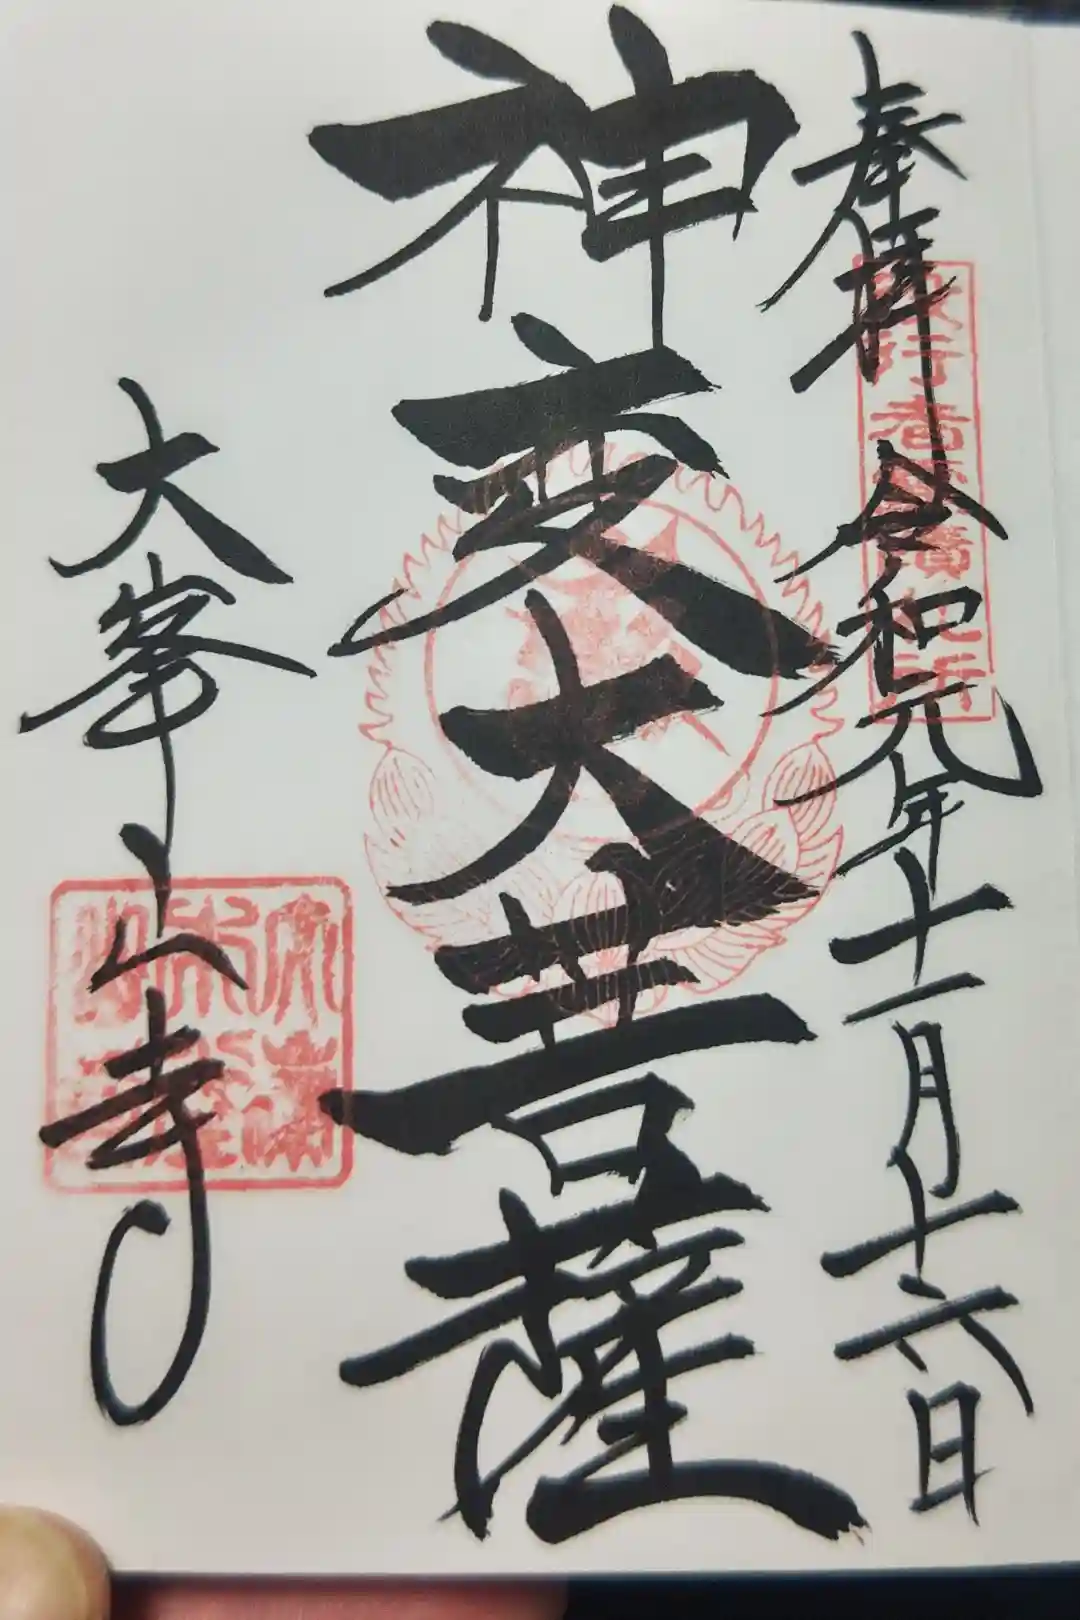 奉拝 令和元年十一月十六日
神変大菩薩
大峯山寺